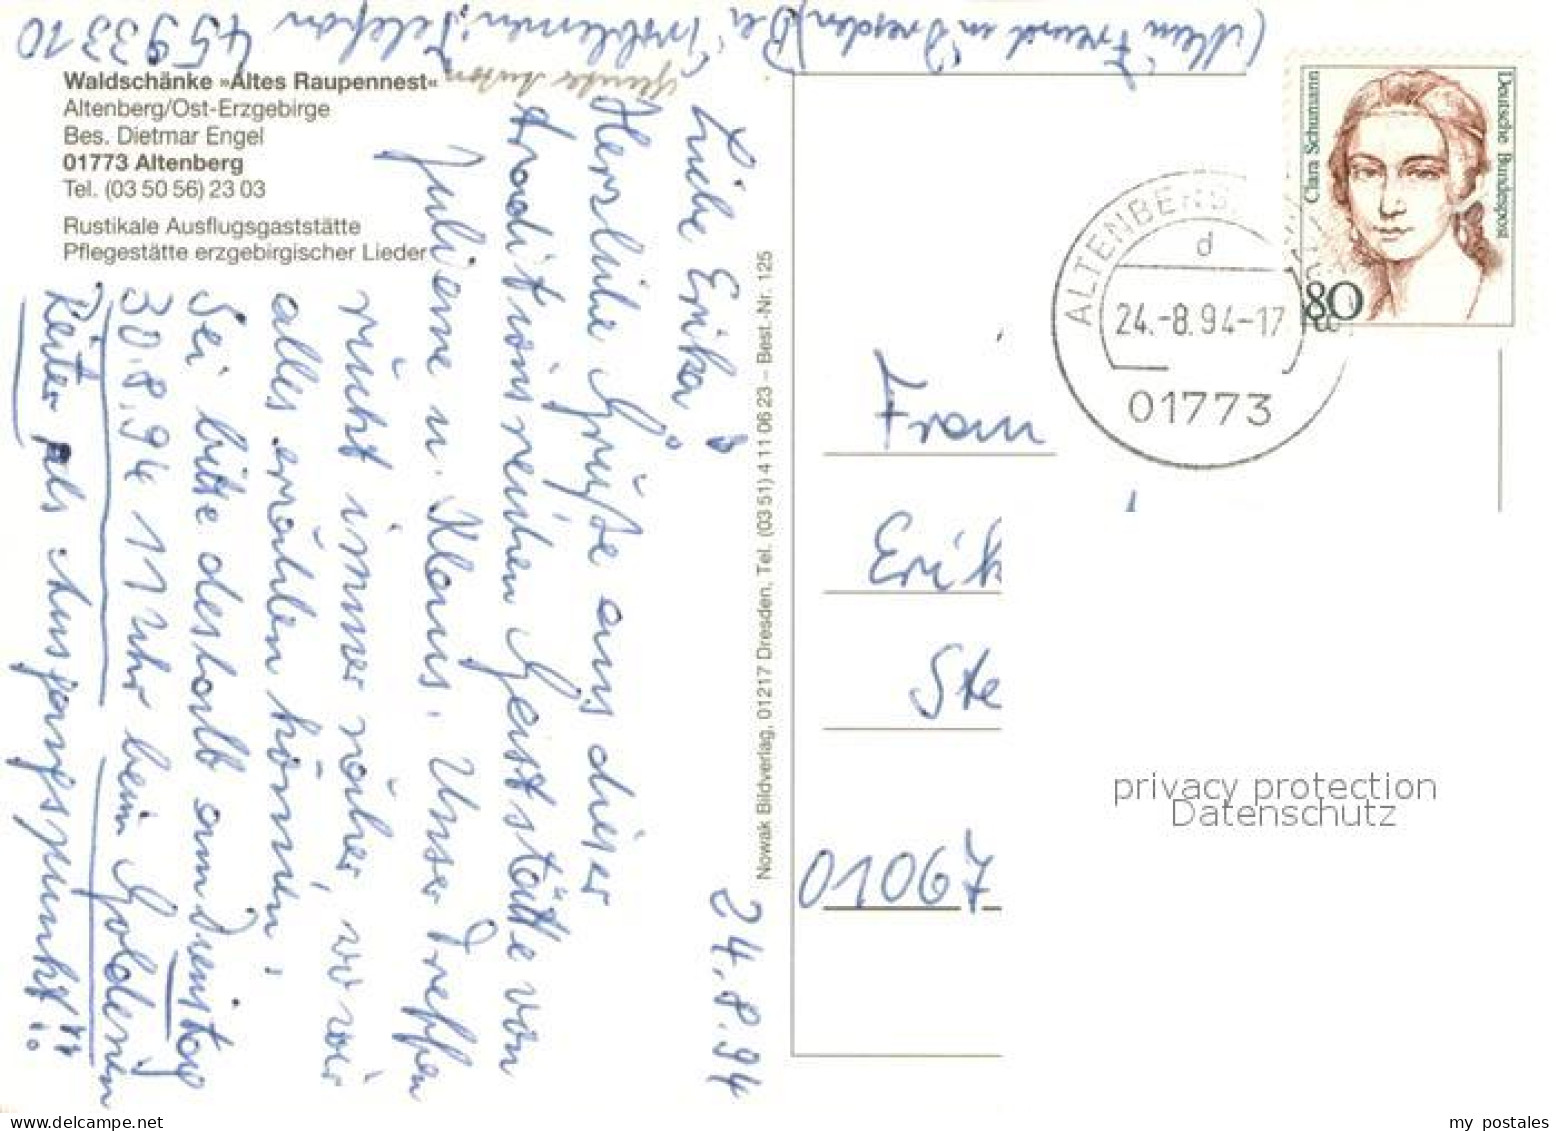 Waldschänke »Altes Raupennest«
Altenberg/Ost-Erzgebirge
Bes. Dietmar Engel
01773 Altenberg
Tel. (03 50 56) 23 03
Rustikale Ausflugsgaststätte
Pflegestätte erzgebirgischer Lieder
24.8.94
Liebe Erika!
Herzliche Grüße aus dieser
traditionsreichen Gaststätte von
Juliane u. Klaus. Unser Treffen
rückt immer näher, wo wir
alles erzählen können.
Sei bitte deshalb am Dienstag
30.8.94 11 Uhr beim Goldenen
Reiter als Ausgangspunkt!!
(Mein Freund in Dresden) Bei Problemen: Telefon 4593310
Nowak Bildverlag, 01217 Dresden, Tel. (03 51) 4 11 06 23 – Best.-Nr. 125
Deutsche Bundespost
Clara Schumann
80
ALTENBERG
d
24.-8.94-17
01773
Frau
Erik
Ste
01067
privacy protection
Datenschutz
my postales